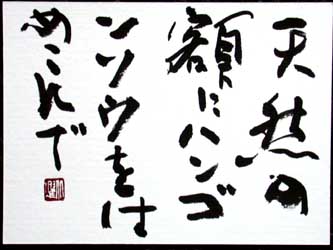 天然の
額にハンゴ
ンソウをは
めこんで